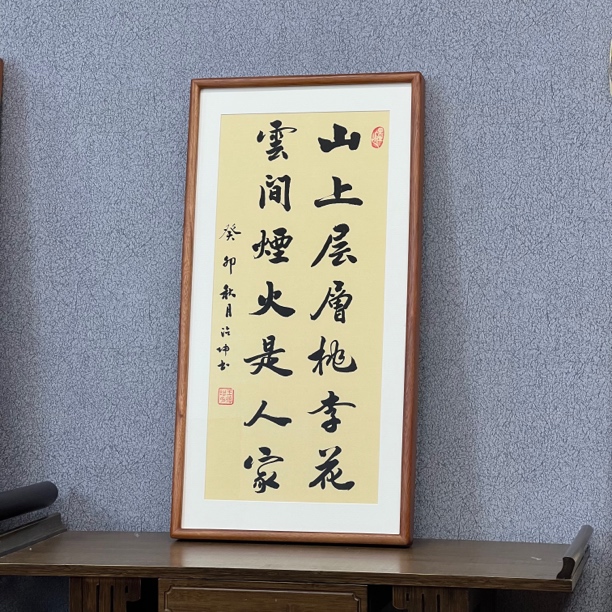 山上层層桃李花
雲間煙火是人家
癸卯秋月治坤书